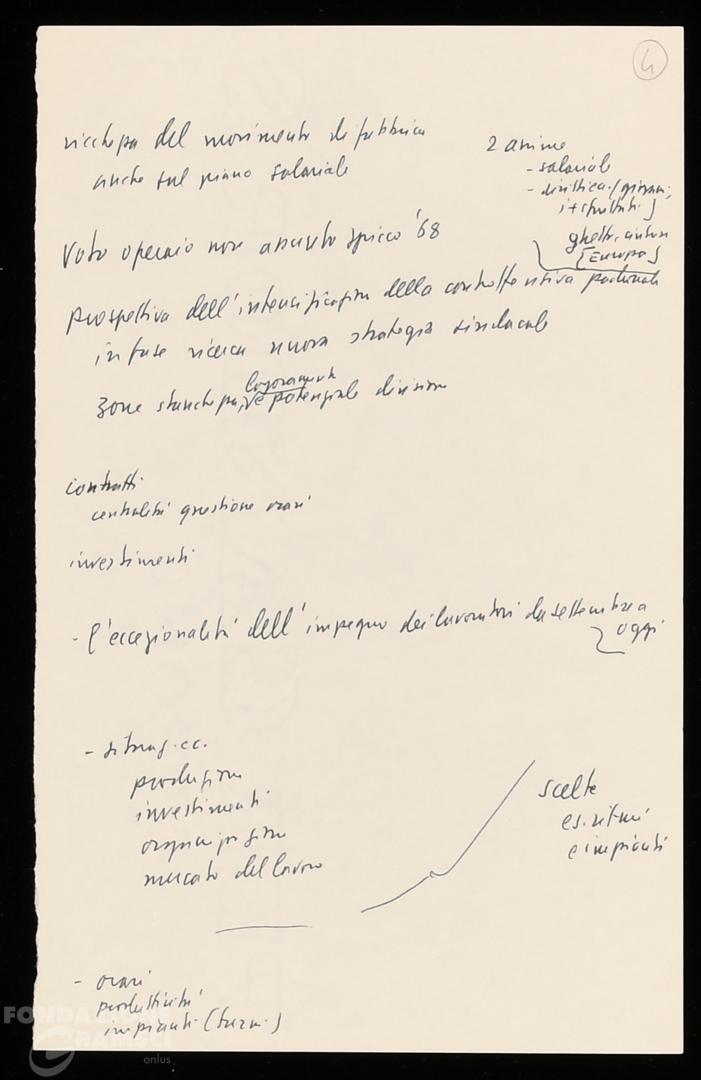 4
ricchezza del movimento di fabbrica
anche sul piano salariale
2 anime
- salariale
- (giovani,
ghetti
(Europa)
Voto operaio non '68
prospettiva dell'intensificazion della controffensiva padronale
in fase ricerca nuova strategia sindacale
logoramento
zone stanchezza, potenziale divisione
contratti
centralità questione orari
investimenti
- l'eccezionalità dell'impegno dei lavoratori da settembre a
oggi
- situaz. ec.
produzione
investimenti
organizzazione
mercato del lavoro
scelte
es. ritmi
e impianti
- orari
produttività
impianti (turni)
FONDAZIONE
GRAMSCI
onlus